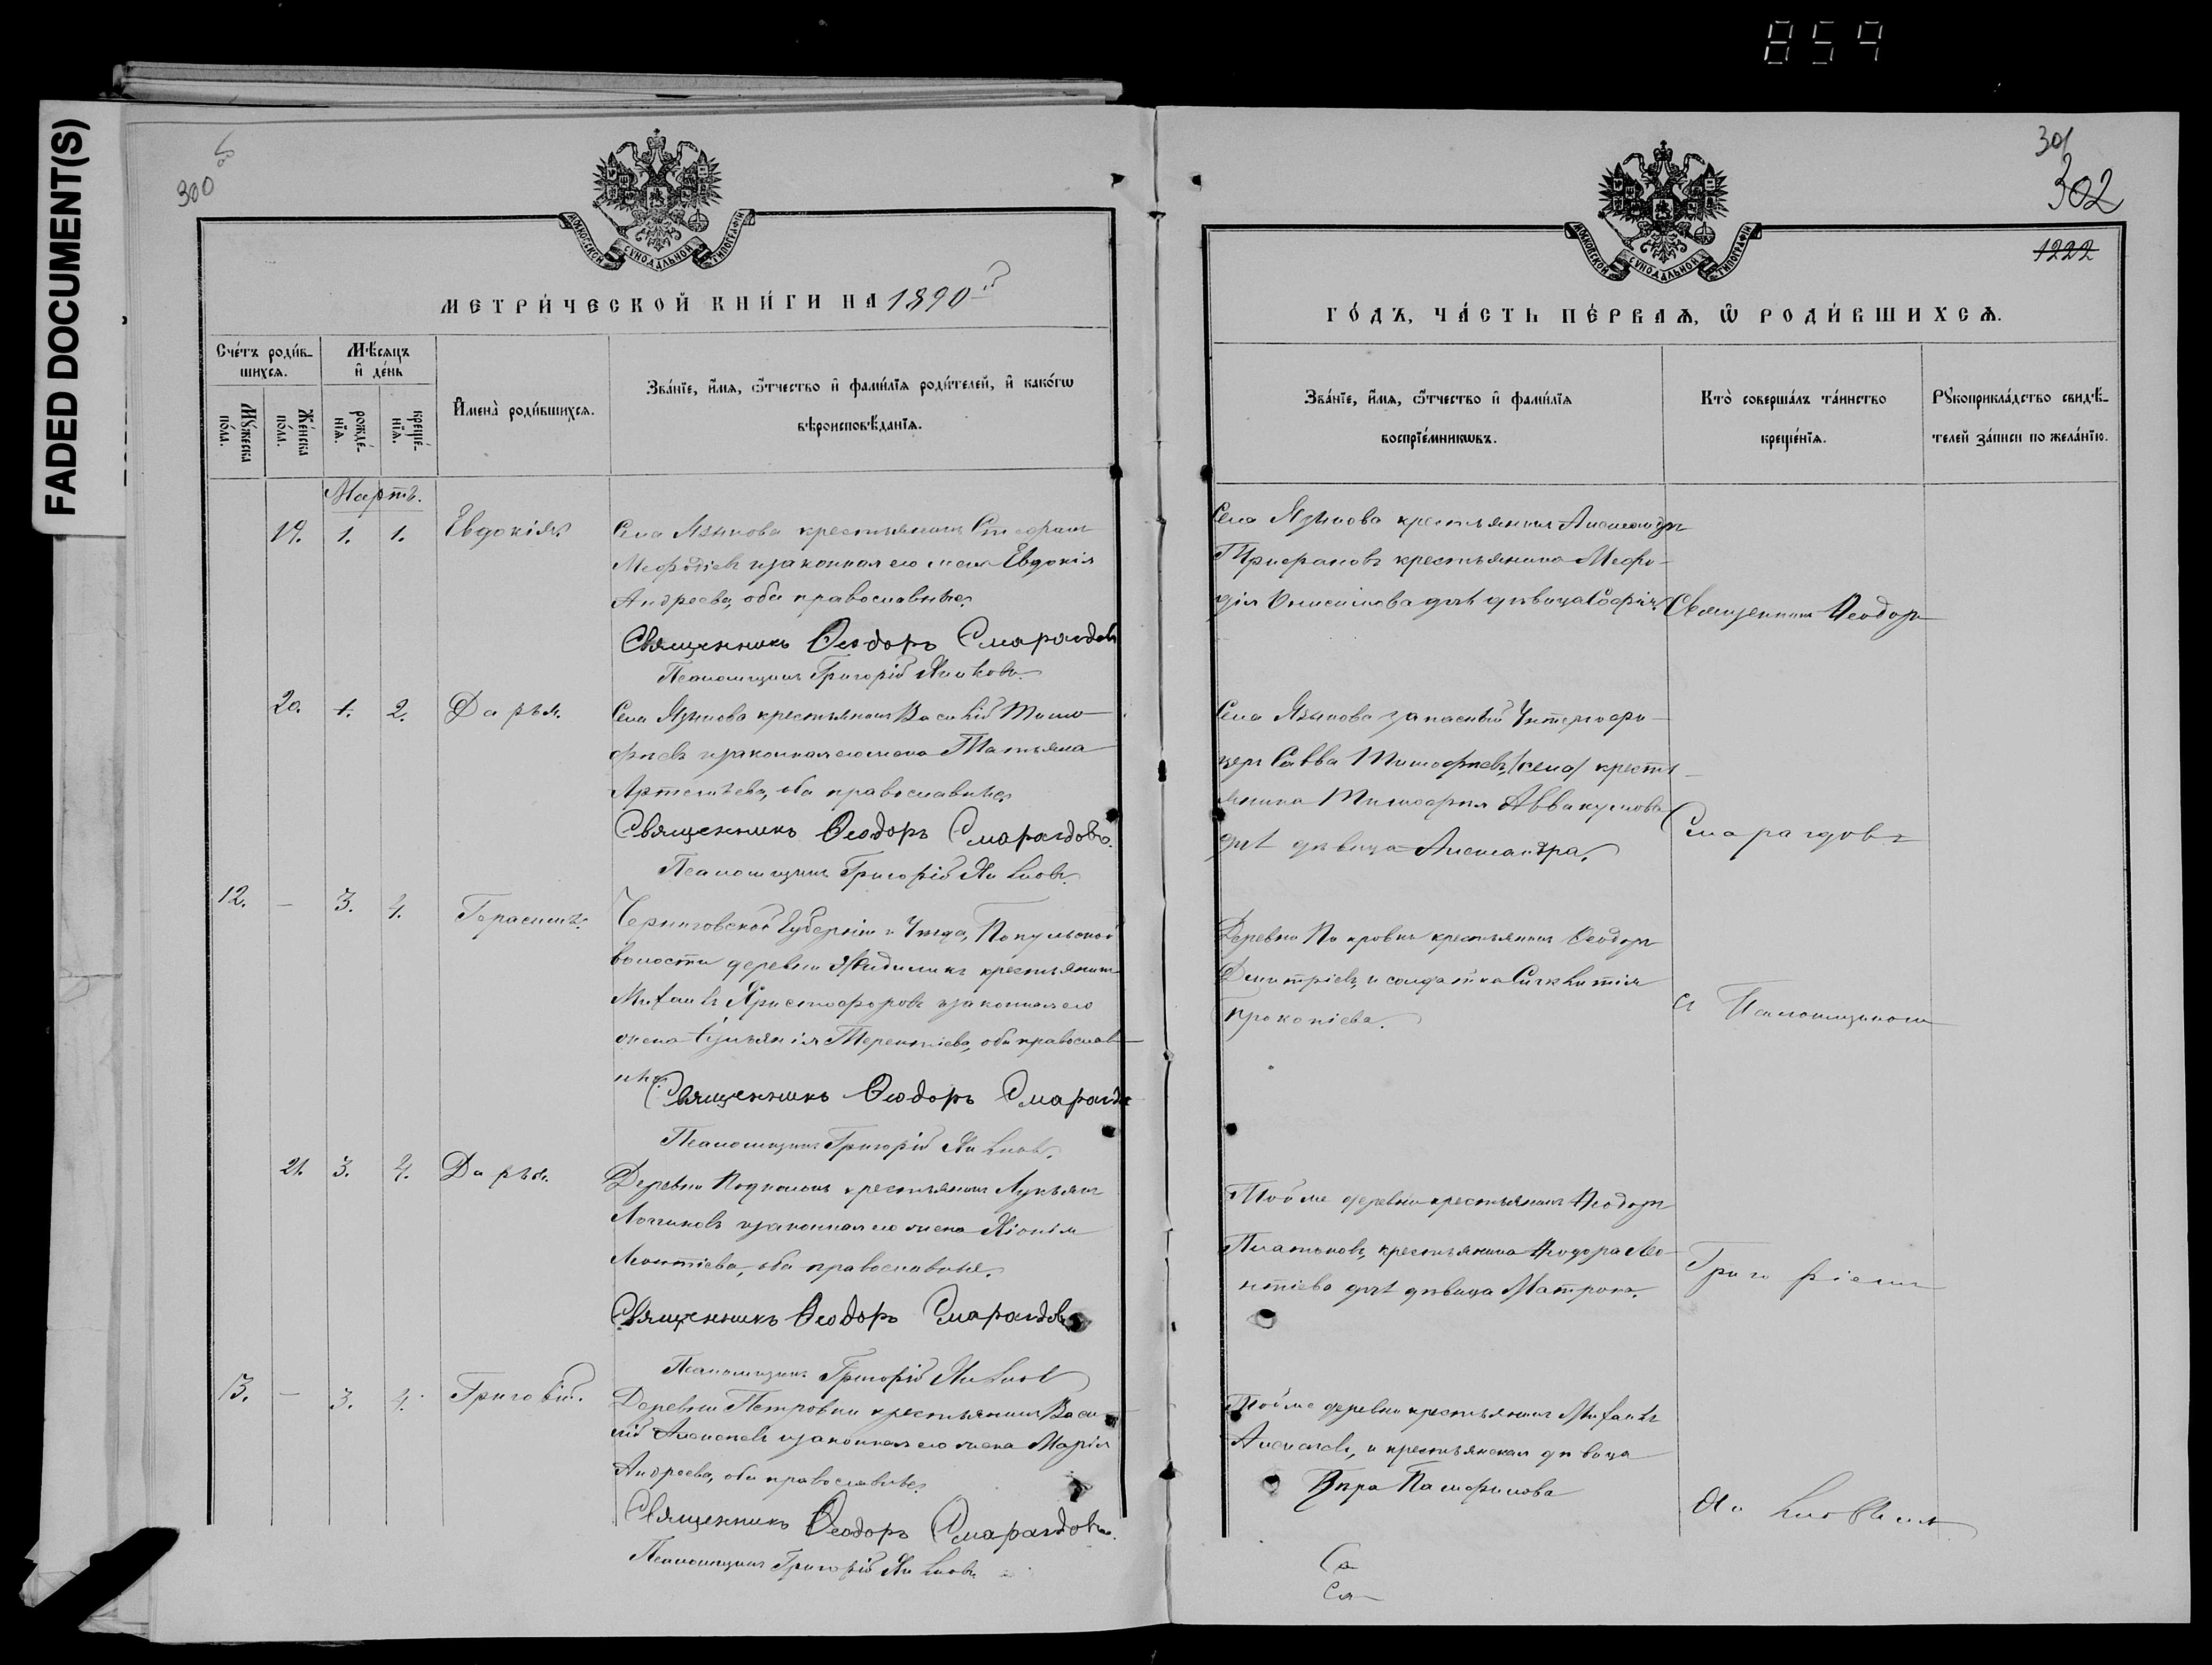 859
FADED DOCUMENT(S)
300 об
МОСКОВСКОЙ СѴНОДАЛЬНОЙ ТИПОГРАФІИ
МЕТРИ́ЧЕСКОЙ КНИ́ГИ НА 1890й
Сче́тъ роди́в-
шихсѧ.
Мꙋ́жеска
по́ла.
Же́нска
по́ла.
Мѣ́сѧцъ
и҆ де́нь
рожде́-
нїѧ.
креще́-
нїѧ.
И҆мена̀ роди́вшихсѧ.
Зва́нїе, и҆́мѧ, ѻ҆́тчество и҆ фами́лїѧ роди́телей, и҆ како́гѡ
вѣроисповѣ́данїѧ.
Мартъ.
19. 1. 1. Евдокія
Села Языкова крестьянинъ Стефанъ
Меѳодіевъ и законная его жена Евдокія
Андреева, оба православные.
Священникъ Ѳеодоръ Смарагдовъ
Псаломщикъ Григорій
20. 1. 2. Дарья.
Села Языкова крестьянинъ Василій Тимо-
феевъ и законная его жена Татьяна
Артемьева, оба православные.
Священникъ Ѳеодоръ Смарагдовъ.
Псаломщикъ Григорій
12. — 3. 4. Герасимъ.
Черниговской губерніи и уѣзда,
волости деревни крестьянинъ
Михаилъ Христофоровъ и законная его
жена Терентіева, оба православ-
ные.
Священникъ Ѳеодоръ Смарагдов
Псаломщикъ Григорій
21. 3. 4. Дарья.
Деревни крестьянинъ Лукьянъ
Логиновъ и законная его жена Хіонія
Леонтіева, оба православные.
Священникъ Ѳеодоръ Смарагдовъ
Псаломщикъ Григорій
13. — 3. 4. Григорій.
Деревни Петровки крестьянинъ Васи-
лій Алексѣевъ и законная его жена Марія
Андреева, оба православные.
Священникъ Ѳеодоръ Смарагдовъ.
Псаломщикъ Григорій
301
302
1222
МОСКОВСКОЙ СѴНОДАЛЬНОЙ ТИПОГРАФІИ
ГО́ДЪ, ЧА́СТЬ ПЕ́РВАѦ, Ѽ РОДИ́ВШИХСѦ.
Зва́нїе, и҆́мѧ, ѻ҆́тчество и҆ фами́лїѧ
воспрїе́мникѡвъ.
Кто̀ соверша́лъ та́инство
креще́нїѧ.
Рꙋкоприкла́дство свидѣ́-
телей за́писи по жела́нїю.
Села Языкова крестьянинъ Александръ
Трифоновъ крестьянина Меѳо-
дія Онисимова дочь дѣвица Софія.
Села Языкова запасный Унтеръ офи-
церъ Савва Тимофеевъ, крестъ-
янина Тимофея Аввакумова
дочь дѣвица Александра.
Деревни Покровки крестьянинъ Ѳеодоръ
Димитріевъ, и солдатка
Прокопіева.
Той же деревни крестьянинъ Ѳеодоръ
Платоновъ, крестьянина Ѳеодора Лео-
нтіева дочь дѣвица Матрона.
Той же деревни крестьянинъ Михаилъ
Алексѣевъ, и крестьянская дѣвица
Священникъ Ѳеодоръ
Смарагдовъ
съ Псаломщикомъ
Григоріемъ